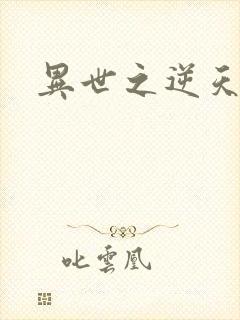 異世之逆天
叱雲凰